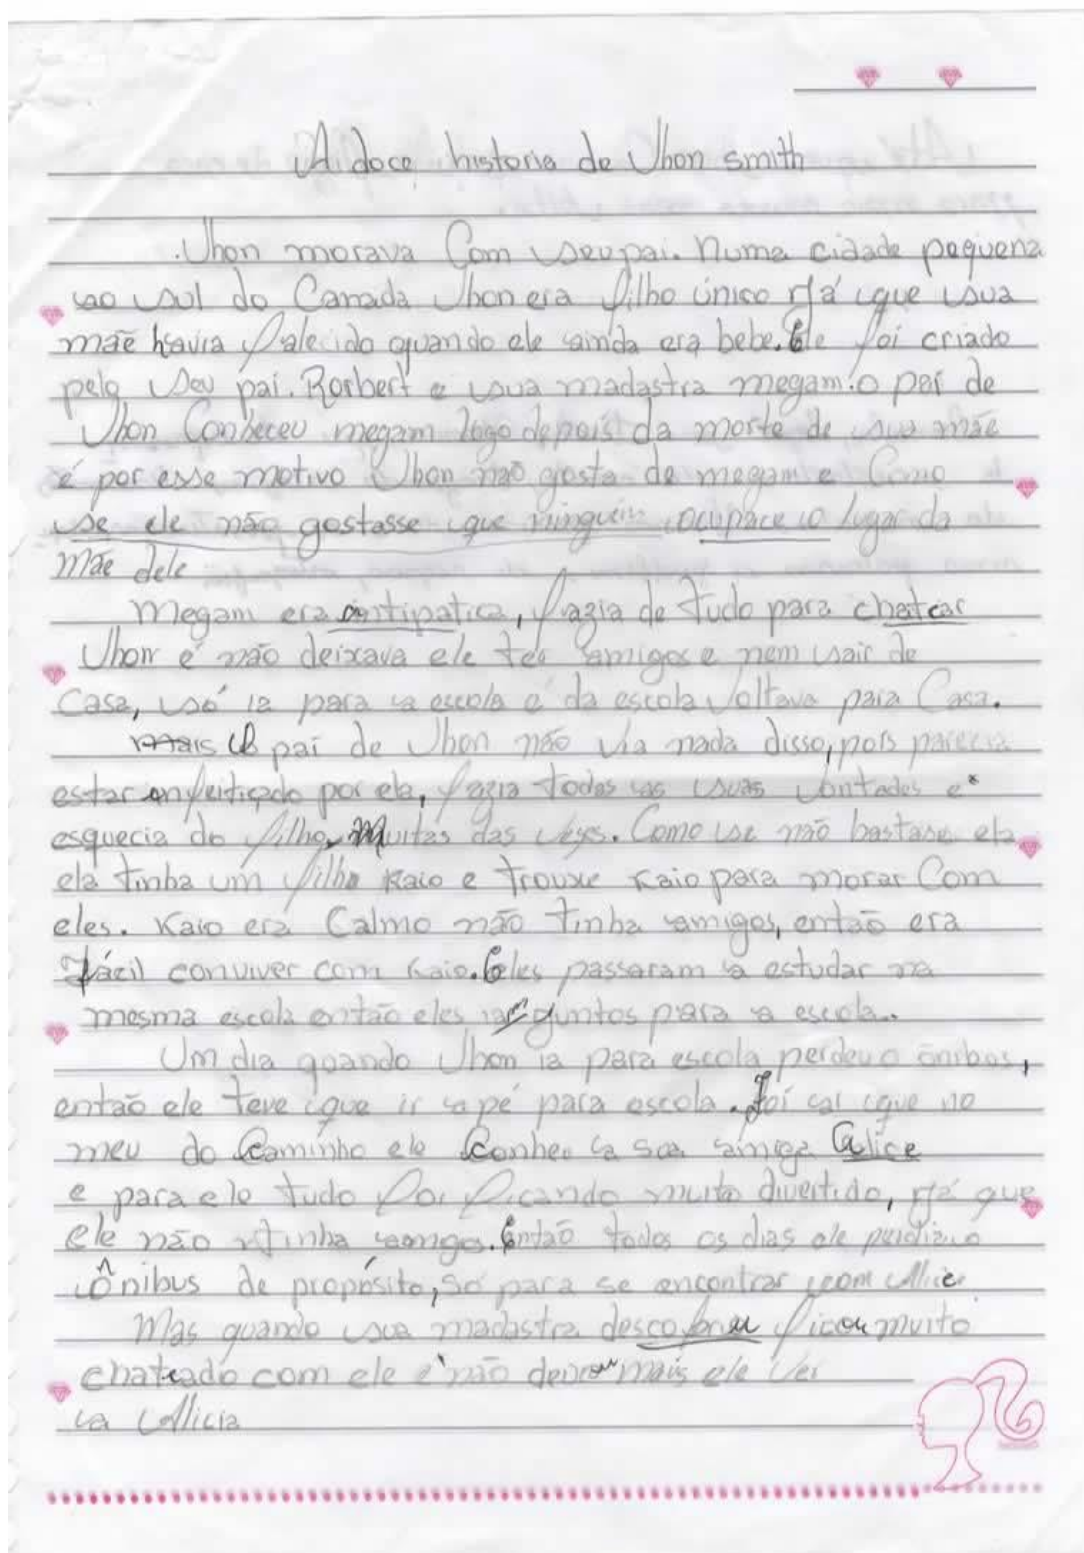 A doce historia de Jhon smith
Jhon morava Com seu pai. Numa cidade pequena
ao sul do Canada Jhon era filho único já que sua
mãe havia falecido quando ele ainda era bebe. Ele foi criado
pelo seu pai. Rorbert e sua madastra megam. o pai de
Jhon Conheceu megam logo depois da morte de sua mãe
é por esse motivo Jhon não gosta de megam e Como
se ele não gostasse que ninguém ocupace o lugar da
mãe dele
Megam era antipatica, fazia de tudo para chatear
Jhon e não deixava ele ter amigos e nem sair de
Casa, só ia para a escola e da escola voltava para Casa.
mais O pai de Jhon não via nada disso, pois parecia
estar enfeitiçado por ela, fazia todas as suas vontades e
esquecia do filho, Muitas das vezes. Como se não bastase ela
ela tinha um filho Kaio e trouxe Kaio para morar Com
eles. Kaio era Calmo não tinha amigos, então era
Fácil conviver com Kaio. Eles passaram a estudar na
mesma escola então eles iam juntos para a escola.
Um dia quando Jhon ia para escola perdeu o ônibus,
então ele teve que ir a pé para escola. Foi aí que no
meu do Caminho ele a sua amiga Alice
e para ele tudo foi ficando muito divertido, já que
ele não tinha amigo. Então todos os dias ele perdia o
Ônibus de propósito, só para se encontrar com Alice
Mas quando sua madastra descobriu ficou muito
chateado com ele e não deixou mais ele ver
a Allicia